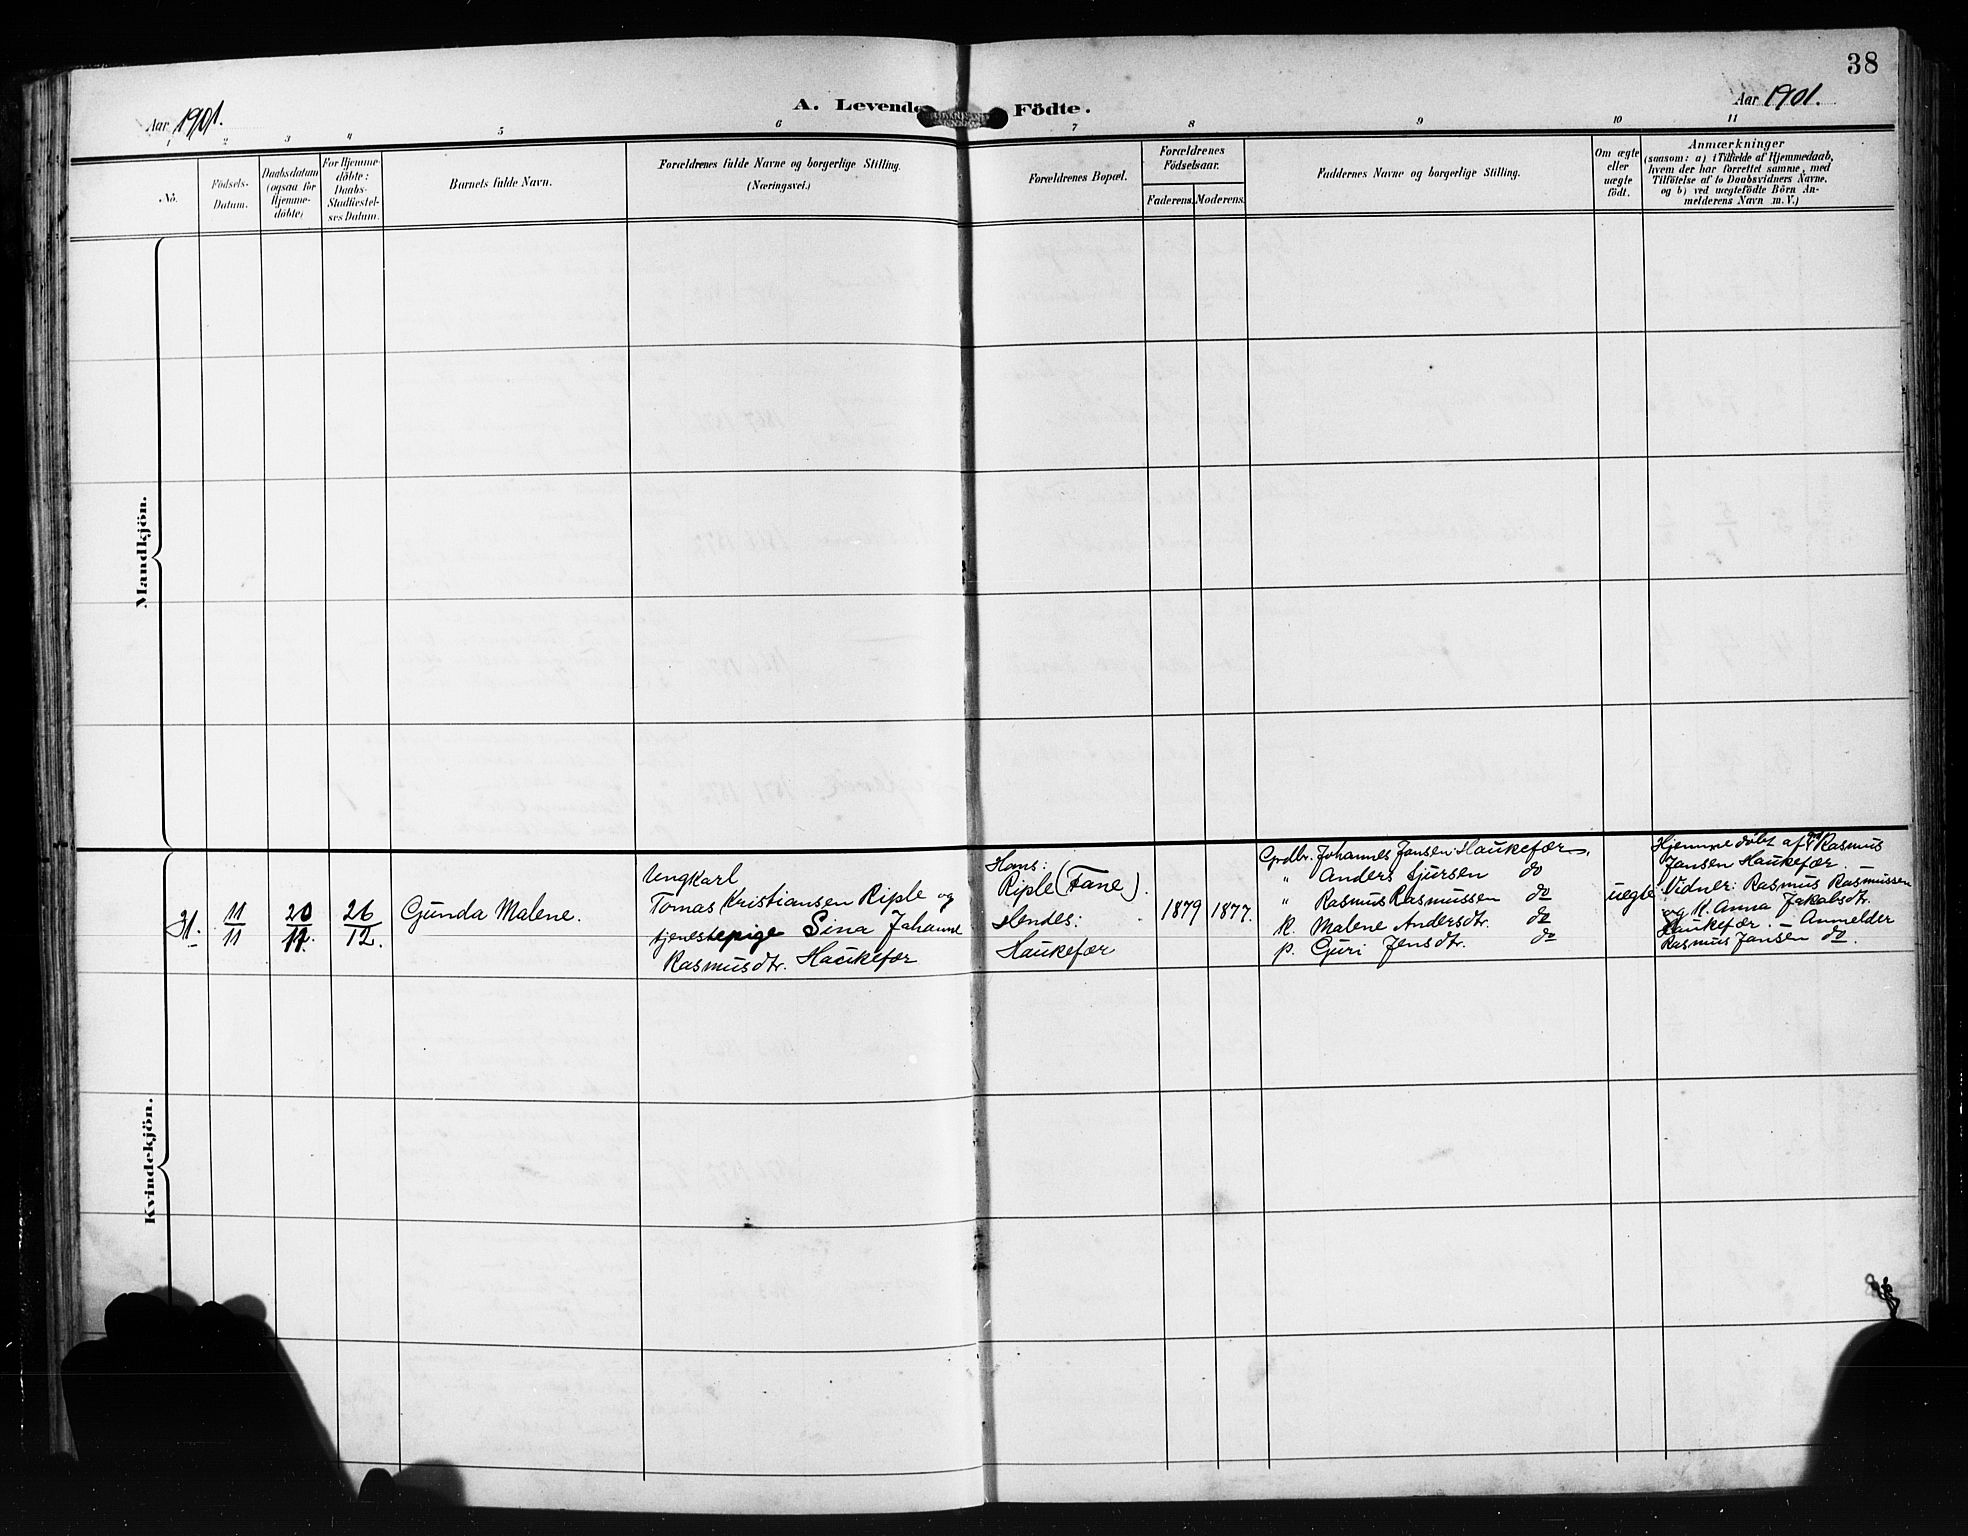 38
Aar 1901.
A. Levende Födte.
Aar 1901.
1 2 3 4 5 6 7 8 9 10 11
No.
Födsels-
Datum.
Daabsdatum
(ogsaa for
Hjemme-
döbte)
For Hjemme-
döbte:
Daabs-
Stadfæstel-
ses Datum.
Barnets fulde Navn.
Forældrenes fulde Navne og borgerlige Stilling.
(Næringsvei.)
Forældrenes Bopæl.
Forældrenes
Födselsaar.
Faderens. Moderens.
Faddernes Navne og borgerlige Stilling.
Om ægte
eller
uægte
födt.
Anmærkninger
(saasom: a) i Tilfælde af Hjemmedaab,
hvem der har forrettet samme, med
Tilföielse af to Daabsvidners Navne,
og b) ved uægtefödte Börn An-
melderens Navn m. V.)
Mandkjön.
Kvindekjön.
31.
11
11
20
11.
26
12.
Gunda Malene.
Ungkarl
Tomas Kristiansen Riple og
tjenestepige Sina Johanne
Rasmusdtr. Haukefær
Hans:
Riple (Fane).
Hendes:
Haukefær
1879
1877.
Grdbr. Johannes Jansen Haukefær.
" Anders Sjursen do
" Rasmus Rasmussen do
K. Malene Andersdtr. do
p. Guri Jensdtr. do
uegte
Hjemmedøbt af Rasmus
Jansen Haukefær.
Vidner: Rasmus Rasmussen
og K. Anna Jakobsdtr.
Haukefær. – Anmelder
Rasmus Jansen do.